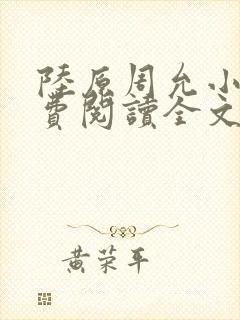 陸原周允小
費閱讀全文
黃荣平